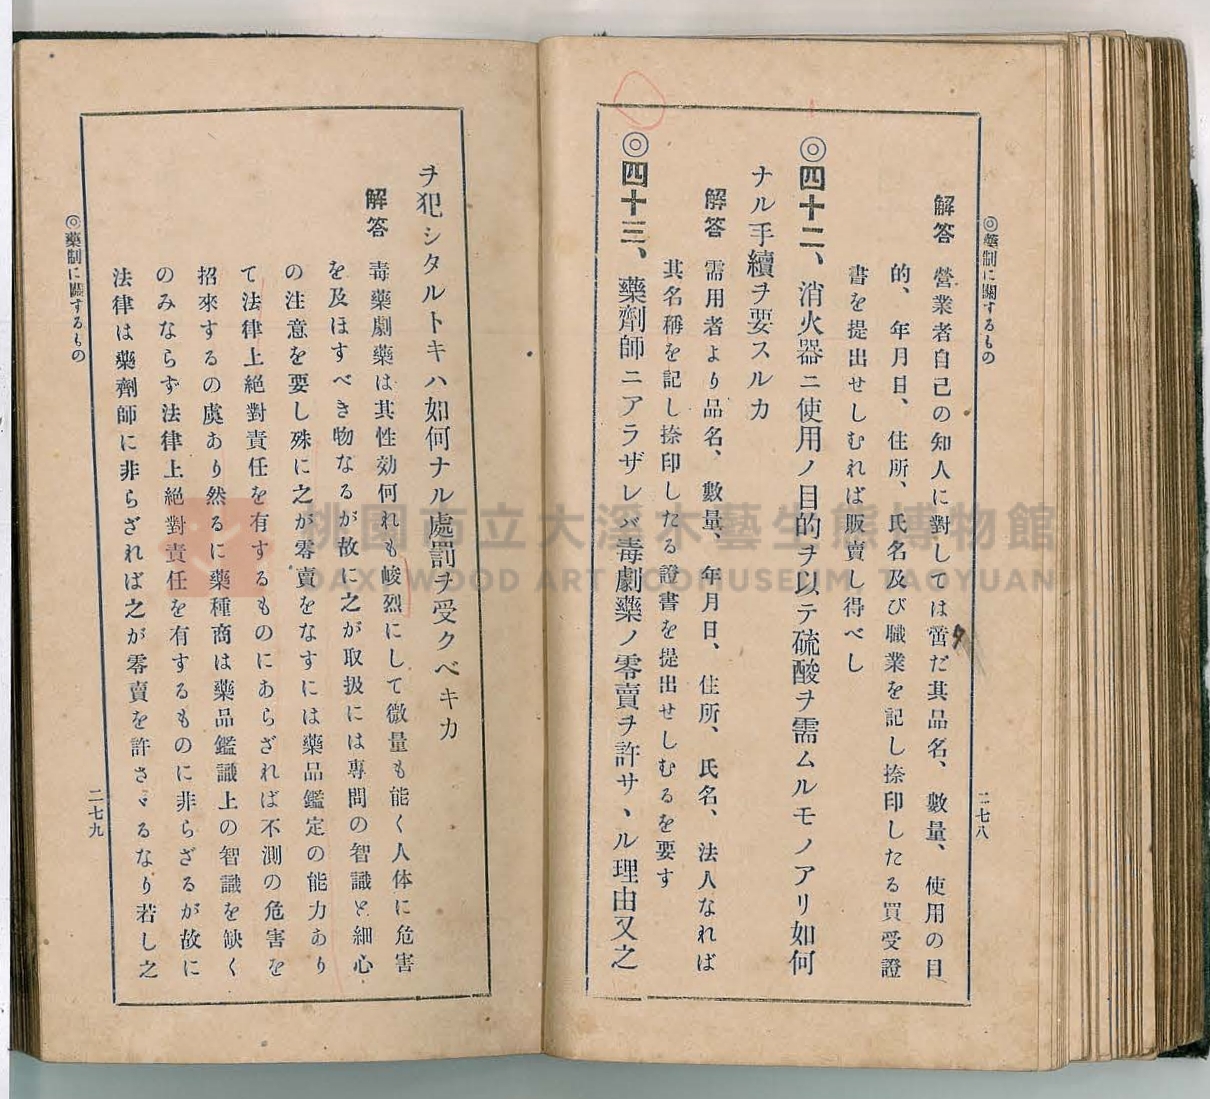 ◎藥制に關するもの
二七八
解答 營業者自己の知人に對しては啻だ其品名、數量、使用の目
的、年月日、住所、氏名及び職業を記し捺印したる買受證
書を提出せしむれば販賣し得べし
◎四十二、消火器ニ使用ノ目的ヲ以テ硫酸ヲ需ムルモノアリ如何
ナル手續ヲ要スルカ
解答 需用者より品名、數量、年月日、住所、氏名、法人なれば
其名稱を記し捺印したる證書を提出せしむるを要す
◎四十三、藥劑師ニアラザレバ毒劇藥ノ零賣ヲ許サヽル理由又之
ヲ犯シタルトキハ如何ナル處罰ヲ受クベキカ
解答 毒藥劇藥は其性効何れも峻烈にして微量も能く人体に危害
を及ほすべき物なるが故に之が取扱には專問の智識と細心
の注意を要し殊に之が零賣をなすには藥品鑑定の能力あり
て法律上絕對責任を有するものにあらざれば不測の危害を
招來するの虞あり然るに藥種商は藥品鑑識上の智識を缺く
のみならず法律上絕對責任を有するものに非らざるが故に
法律は藥劑師に非らざれば之が零賣を許さゞるなり若し之
◎藥制に關するもの
二七九
桃園市立大溪木藝生態博物館
DAXI WOOD ART ECOMUSEUM TAOYUAN